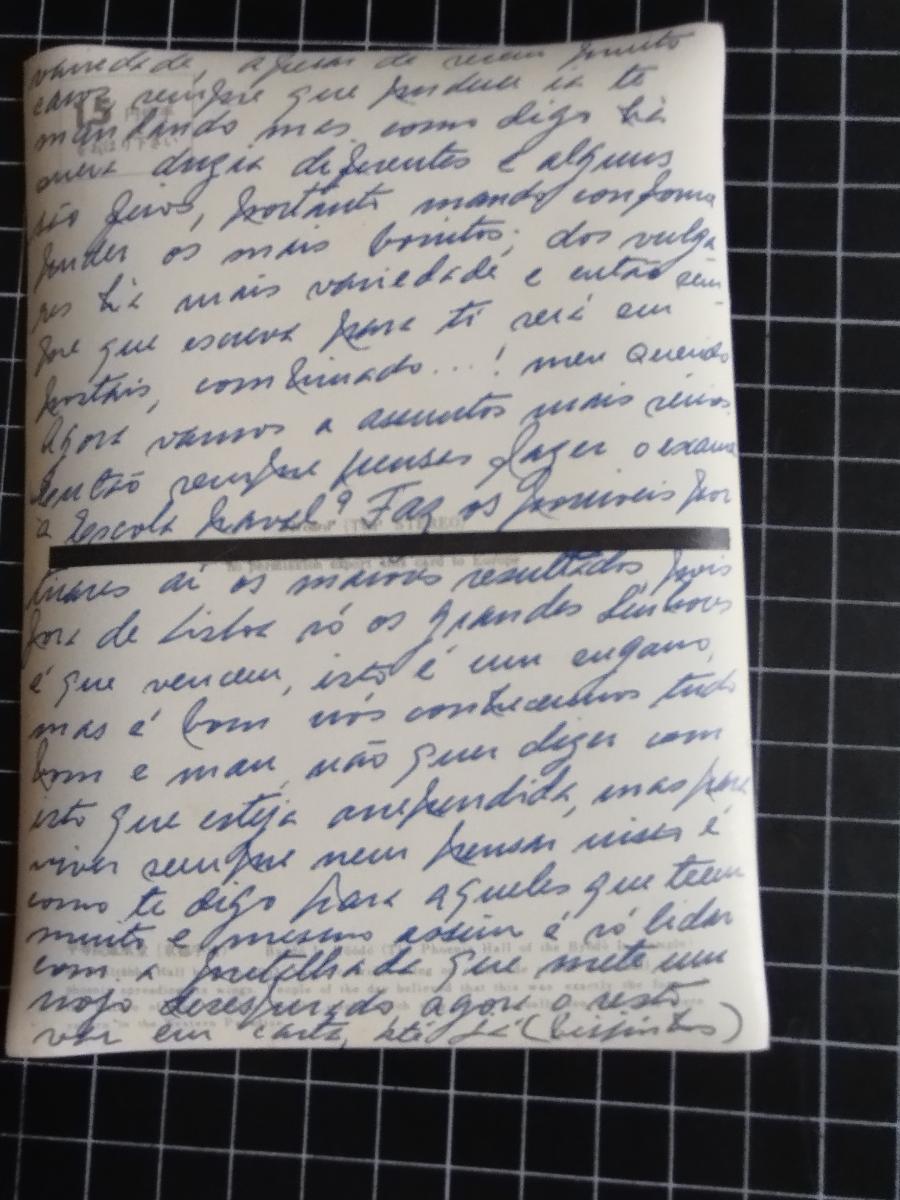 variedade, apesar de serem muito
caros sempre que pudera ia te
mandando mas como digo há
uma duzia diferentes e alguns
são feios, portanto mando conforme
puder os mais bonitos; dos vulga
res há mais variedade e então sem
pre que escreva para ti será em
postais, combinado...! meu querido
Agora vamos a assuntos mais sérios
então sempre pensas fazer o exame
a Escola Naval? Faz os possiveis por
(TOP STEREO)
No permission export this card to Europe
tirares aí os maiores resultados, pois
fora de Lisboa só os grandes Senhores
é que vencem, isto é um engano,
mas é bom nós conhecermos tudo
bom e mau, não quer dizer com
isto que esteja arrependida, mas para
viver sempre nem pensar nisso é
como te digo para aqueles que teem
muito e mesmo assim é só lidar
(The Phoenix Hall of the
com a que mete um
nojo desesperado agora o resto
vai em carta, até já (beijinhos)